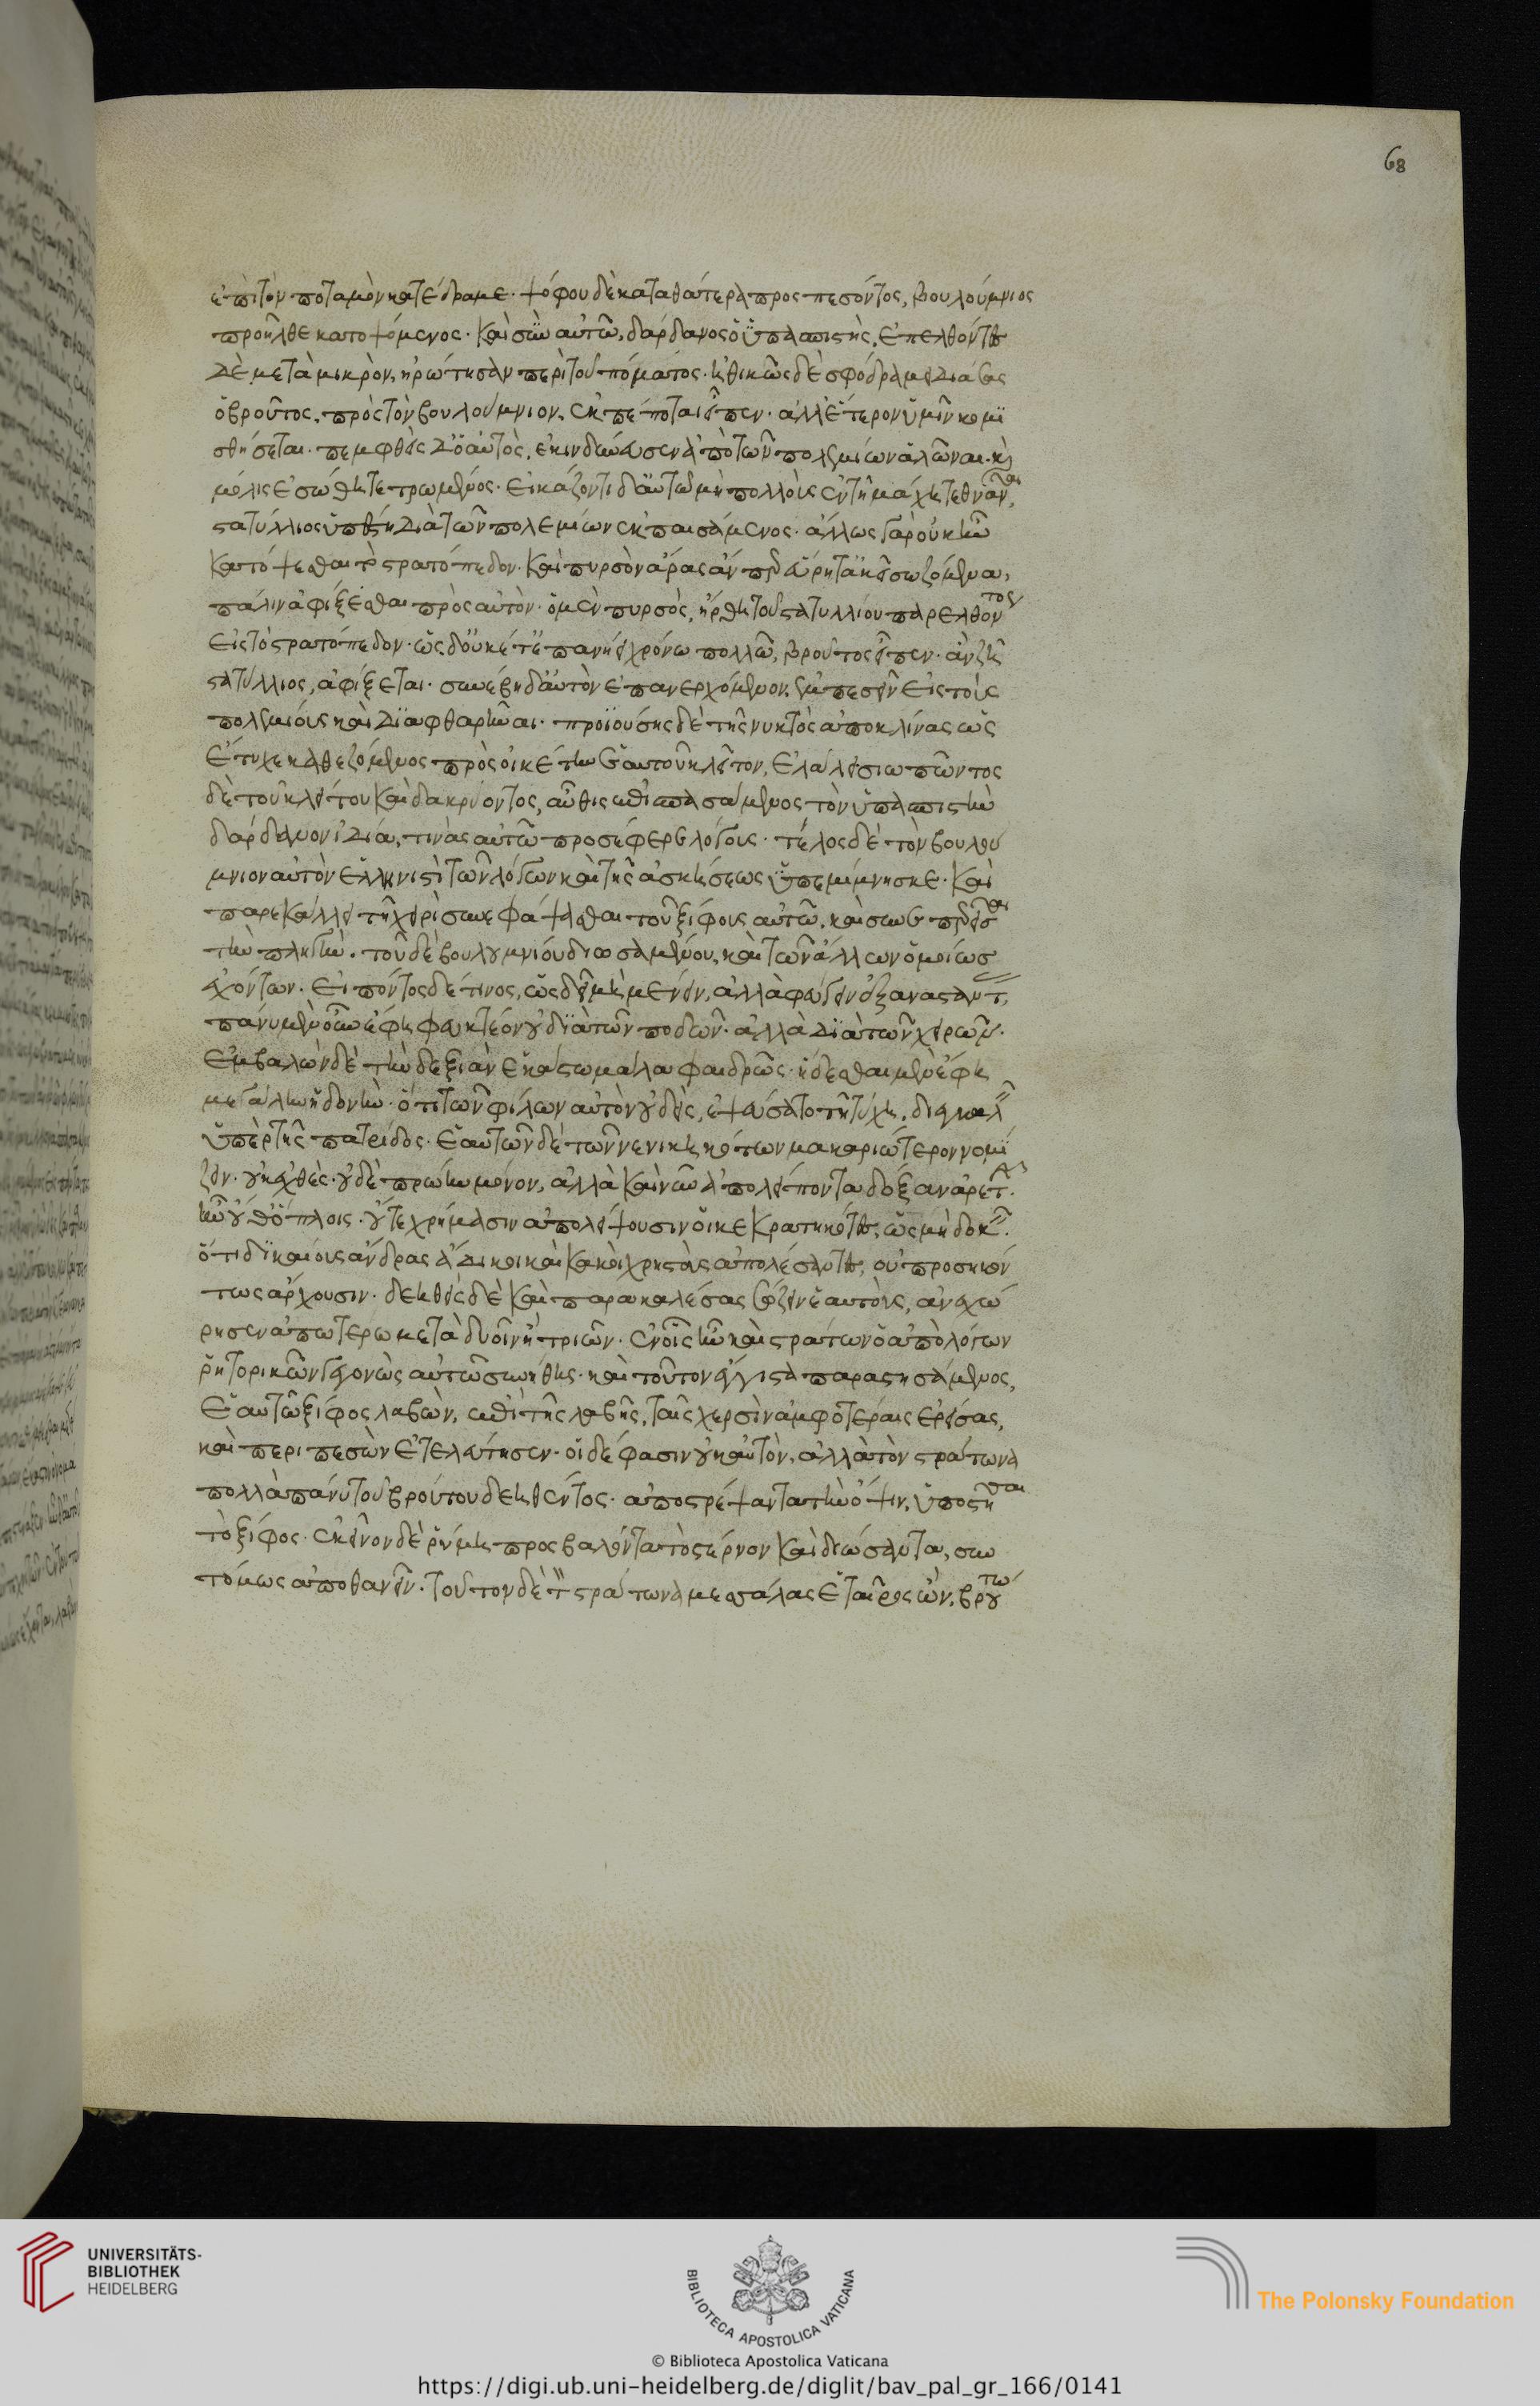 ἐπὶ τὸν ποταμὸν κατέδραμε· ψόφου δὲ κατὰ θάτερα προσπεσόντος, βουλούμνιος
προῆλθε κατοψόμενος· καὶ σὺν αὐτῶ, δάρδανος ὁ ὑπασπιστής. ἐπελθόντες
δὲ μετὰ μικρὸν, ἠρώτησαν περὶ τοῦ πόματος· ἠθικῶς δὲ σφόδρα μειδιάσας
ὁ βροῦτος, πρὸς τὸν βουλούμνιον, ἐκπέποται εἶπεν· ἀλλ' ἕτερον ὑμῖν κομι
σθήσεται· πεμφθεὶς δ' ὁ αὐτὸς, ἐκινδύνευσεν ἀπὸ τῶν πολεμίων ἁλῶναι· καὶ
μόλις ἐσώθη τετρωμένος· εἰκάζοντι δ' αὐτῶ μὴ πολλοὺς ἐν τῆ μάχη τεθνάναι,
στατύλλιος ὑπέστη διὰ τῶν πολεμίων ἐκπαισάμενος· ἄλλως γὰρ οὐκ ἦν
κατόψεσθαι τὸ στρατόπεδον· καὶ πυρσὸν ἄρας ἄνπερ εὕρη τἀκεῖ σωζόμενα,
πάλιν ἀφίξεσθαι πρὸς αὐτόν· ὁ μὲν πυρσὸς, ἤρθη τοῦ στατυλλίου παρελθόντος
εἰς τὸ στρατόπεδον· ὡς δ' οὐκέτ' ἐπανήει χρόνω πολλῶ, βροῦτος εἶπεν· ἂν ζῆ
στατύλλιος, ἀφίξεται· συνέβη δ' αὐτὸν ἐπανερχόμενον, ἐμπεσεῖν εἰς τοὺς
πολεμίους καὶ διαφθαρῆναι· προϊούσης δὲ τῆς νυκτὸς ἀποκλίνας ὡς
ἔτυχε καθεζόμενος πρὸς οἰκέτην ἑαυτοῦ κλεῖτον, ἐλάλει σιωπῶντος
δὲ τοῦ κλείτου καὶ δακρύοντος, αὖθις ἐπισπασάμενος τὸν ὑπασπιστὴν
δάρδανον ἰδία, τινὰς αὐτῶ προσέφερε λόγους· τέλος δὲ τὸν βουλού
μνιον αὐτὸν ἑλληνιστὶ τῶν λόγων καὶ τῆς ἀσκήσεως ὑπεμίμνησκε· καὶ
παρεκάλει τῆ χειρὶ συνεφάψασθαι τοῦ ξίφους αὐτῶ, καὶ συνεπερεῖσαι
τὴν πληγήν. τοῦ δὲ βουλουμνίου διωσαμένου, καὶ τῶν ἄλλων ὁμοίως
ἐχόντων. εἰπόντος δέ τινος, ὡς δεῖ μὴ μένειν, ἀλλὰ φεύγειν ἐξαναστὰς,
πάνυ μὲν οὖν ἔφη φευκτέον οὐ διὰ τῶν ποδῶν· ἀλλὰ διὰ τῶν χειρῶν.
ἐμβαλὼν δὲ τὴν δεξιὰν ἑκάστω μάλα φαιδρῶς· ἥδεσθαι μὲν ἔφη
μεγάλην ἡδονὴν· ὅτι τῶν φίλων αὐτὸν οὐδεὶς, ἐψεύσατο τῆ τύχη, δ' ἐγκαλεῖν
ὑπὲρ τῆς πατρίδος· ἑαυτὸν δὲ τῶν νενικηκότων μακαριώτερον νομί
ζειν· οὐκ ἐχθὲς· οὐδὲ πρώην μόνον, ἀλλὰ καὶ νῦν ἀπολείποντα δόξαν ἀρετῆς·
ἣν οὔθ' ὅπλοις· οὔτε χρήμασιν ἀπολείψουσιν οἱ κεκρατηκότες, ὡς μὴ δοκεῖν·
ὅτι δικαίους ἄνδρας ἄδικοι καὶ κακοὶ χρηστοὺς ἀπολέσαντες, οὐ προσηκόν
τως ἄρχουσιν· δεηθεὶς δὲ καὶ παρακαλέσας σώζειν ἑαυτοὺς, ἀνεχώ
ρησεν ἀπωτέρω μετὰ δυοῖν ἢ τριῶν· ἐν οἷς ἦν καὶ στράτων ὁ ἀπὸ λόγων
ῥητορικῶν γεγονὼς αὐτῶ συνήθης· καὶ τοῦτον ἔγγιστα παραστησάμενος,
ἑαυτῶ ξίφος λαβὼν, ἐπὶ τῆς λαβῆς, ταῖς χερσὶν ἀμφοτέραις ἐρείσας,
καὶ περιπεσὼν ἐτελεύτησεν· οἱ δέ φασιν οὐκ αὐτὸν, ἀλλὰ τὸν στράτωνα
πολλὰ πάνυ τοῦ βρούτου δεηθέντος· ἀποστρέψαντα τὴν ὄψιν, ὑποστῆσαι
τὸ ξίφος· ἐκεῖνον δὲ ῥύμη προσβαλόντα τὸ στέρνον καὶ διώσαντα, συν
τόμως ἀποθανεῖν. τοῦτον δὲ τὸν στράτωνα μεσσάλας ἑταῖρος ὢν, βρούτω
68
UNIVERSITÄTS-
BIBLIOTHEK
HEIDELBERG
BIBLIOTECA APOSTOLICA VATICANA
© Biblioteca Apostolica Vaticana
The Polonsky Foundation
https://digi.ub.uni-heidelberg.de/diglit/bav_pal_gr_166/0141